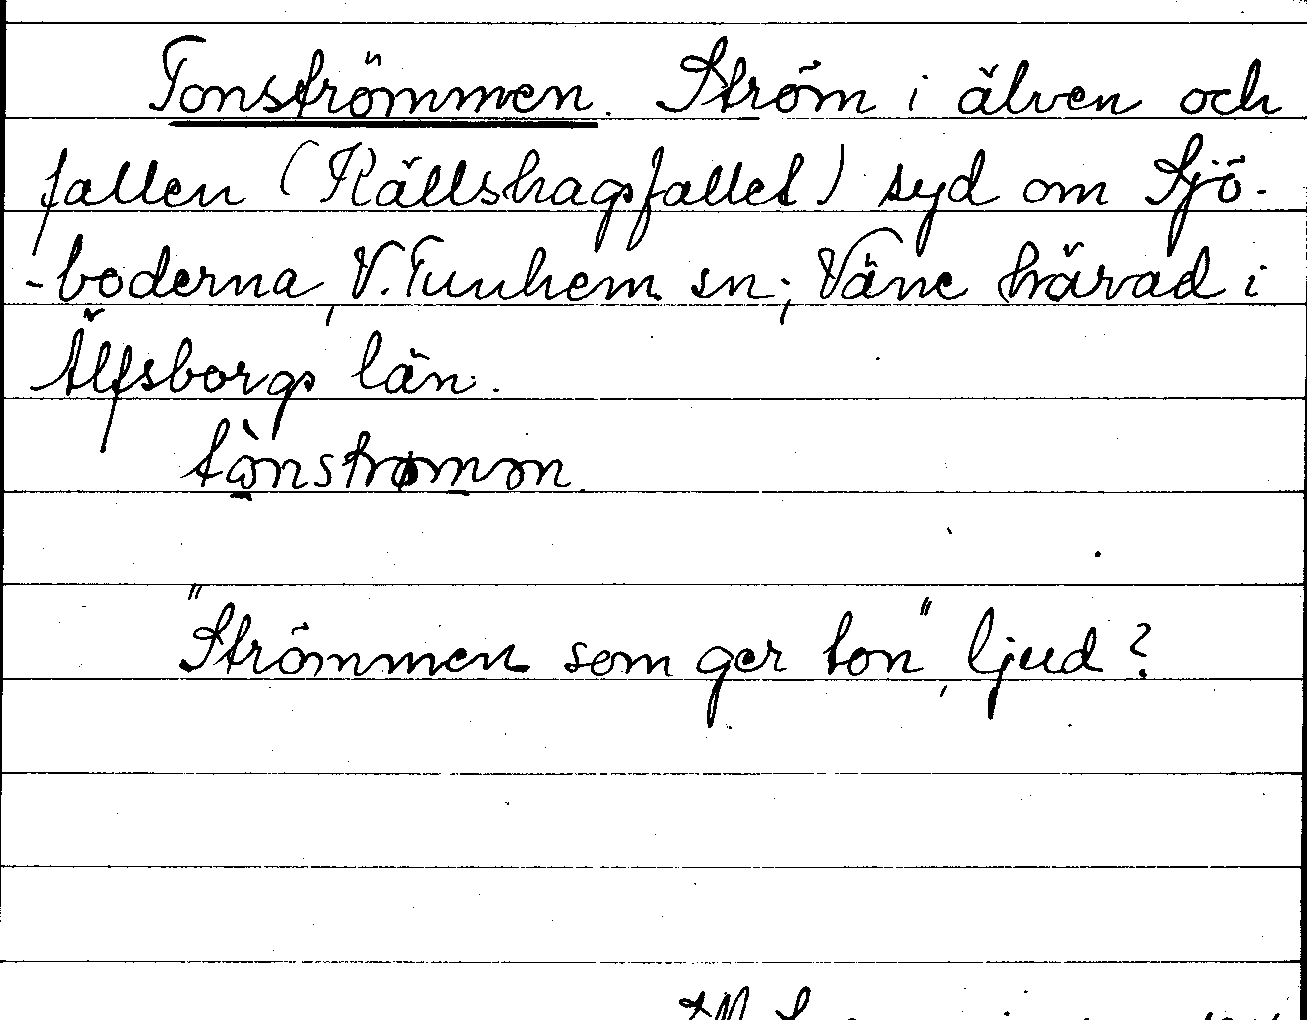 Tonströmmen. Ström i älven och
fallen (Källshagsfallet) syd om Sjö-
-boderna, V. Tunhem sn; Väne härad i
Älfsborgs län.
tònstrømmøn
"Strömmen som ger ton", ljud?